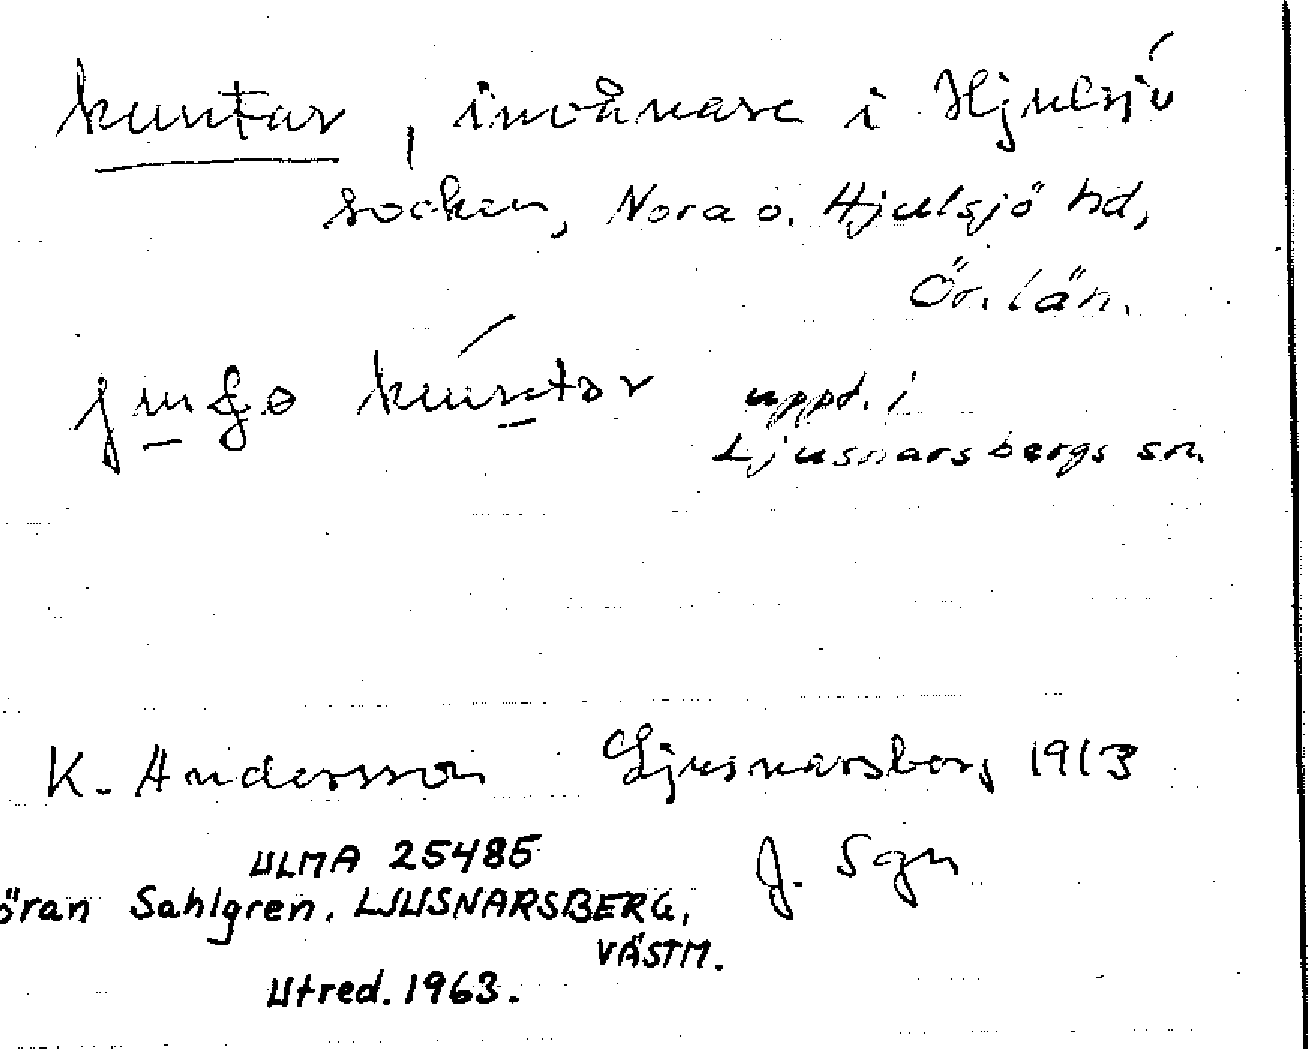 kuntar, invånare i Hjulsjö
socken, Nora o. Hjulsjö hd,
Ör. län.
kúntar uppt. i
Ljusnarsbergs sn.
K. Andersson Ljusnarsberg 1913
ULMA 25485 J. Sgn
öran Sahlgren. LJUSNARSBERG,
VÄSTM.
Utred. 1963.